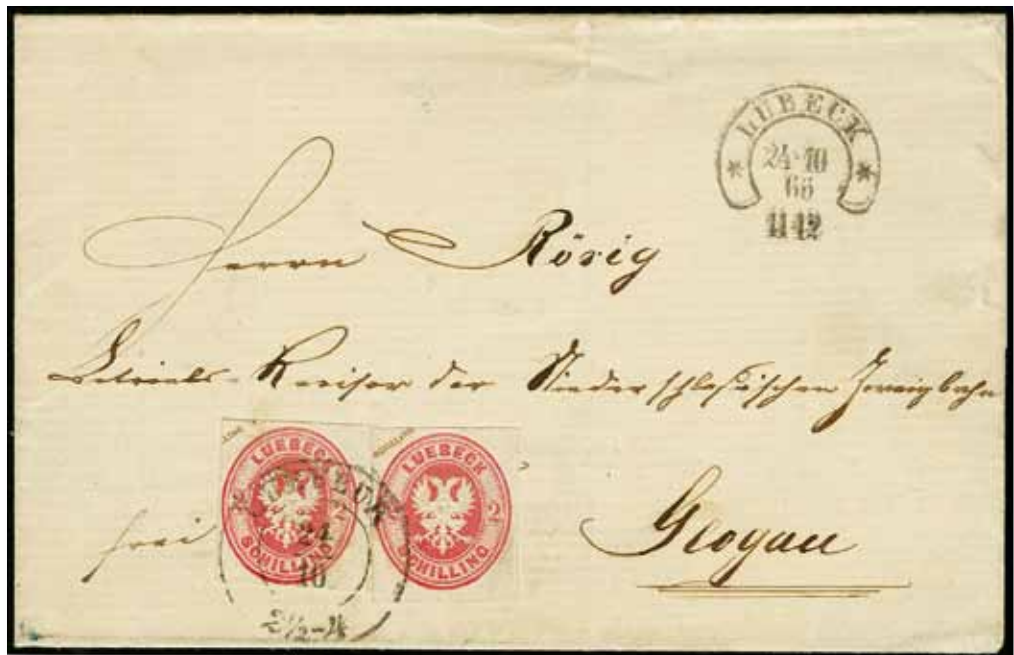 LÜBECK
24·10
66
11-12
Herrn Rörig
Betriebs-Revisor der Niederschlesischen Zweigbahn
LUEBECK
SCHILLING
LUEBECK
2 2
SCHILLING
LÜBECK
24
10
frei
Glogau